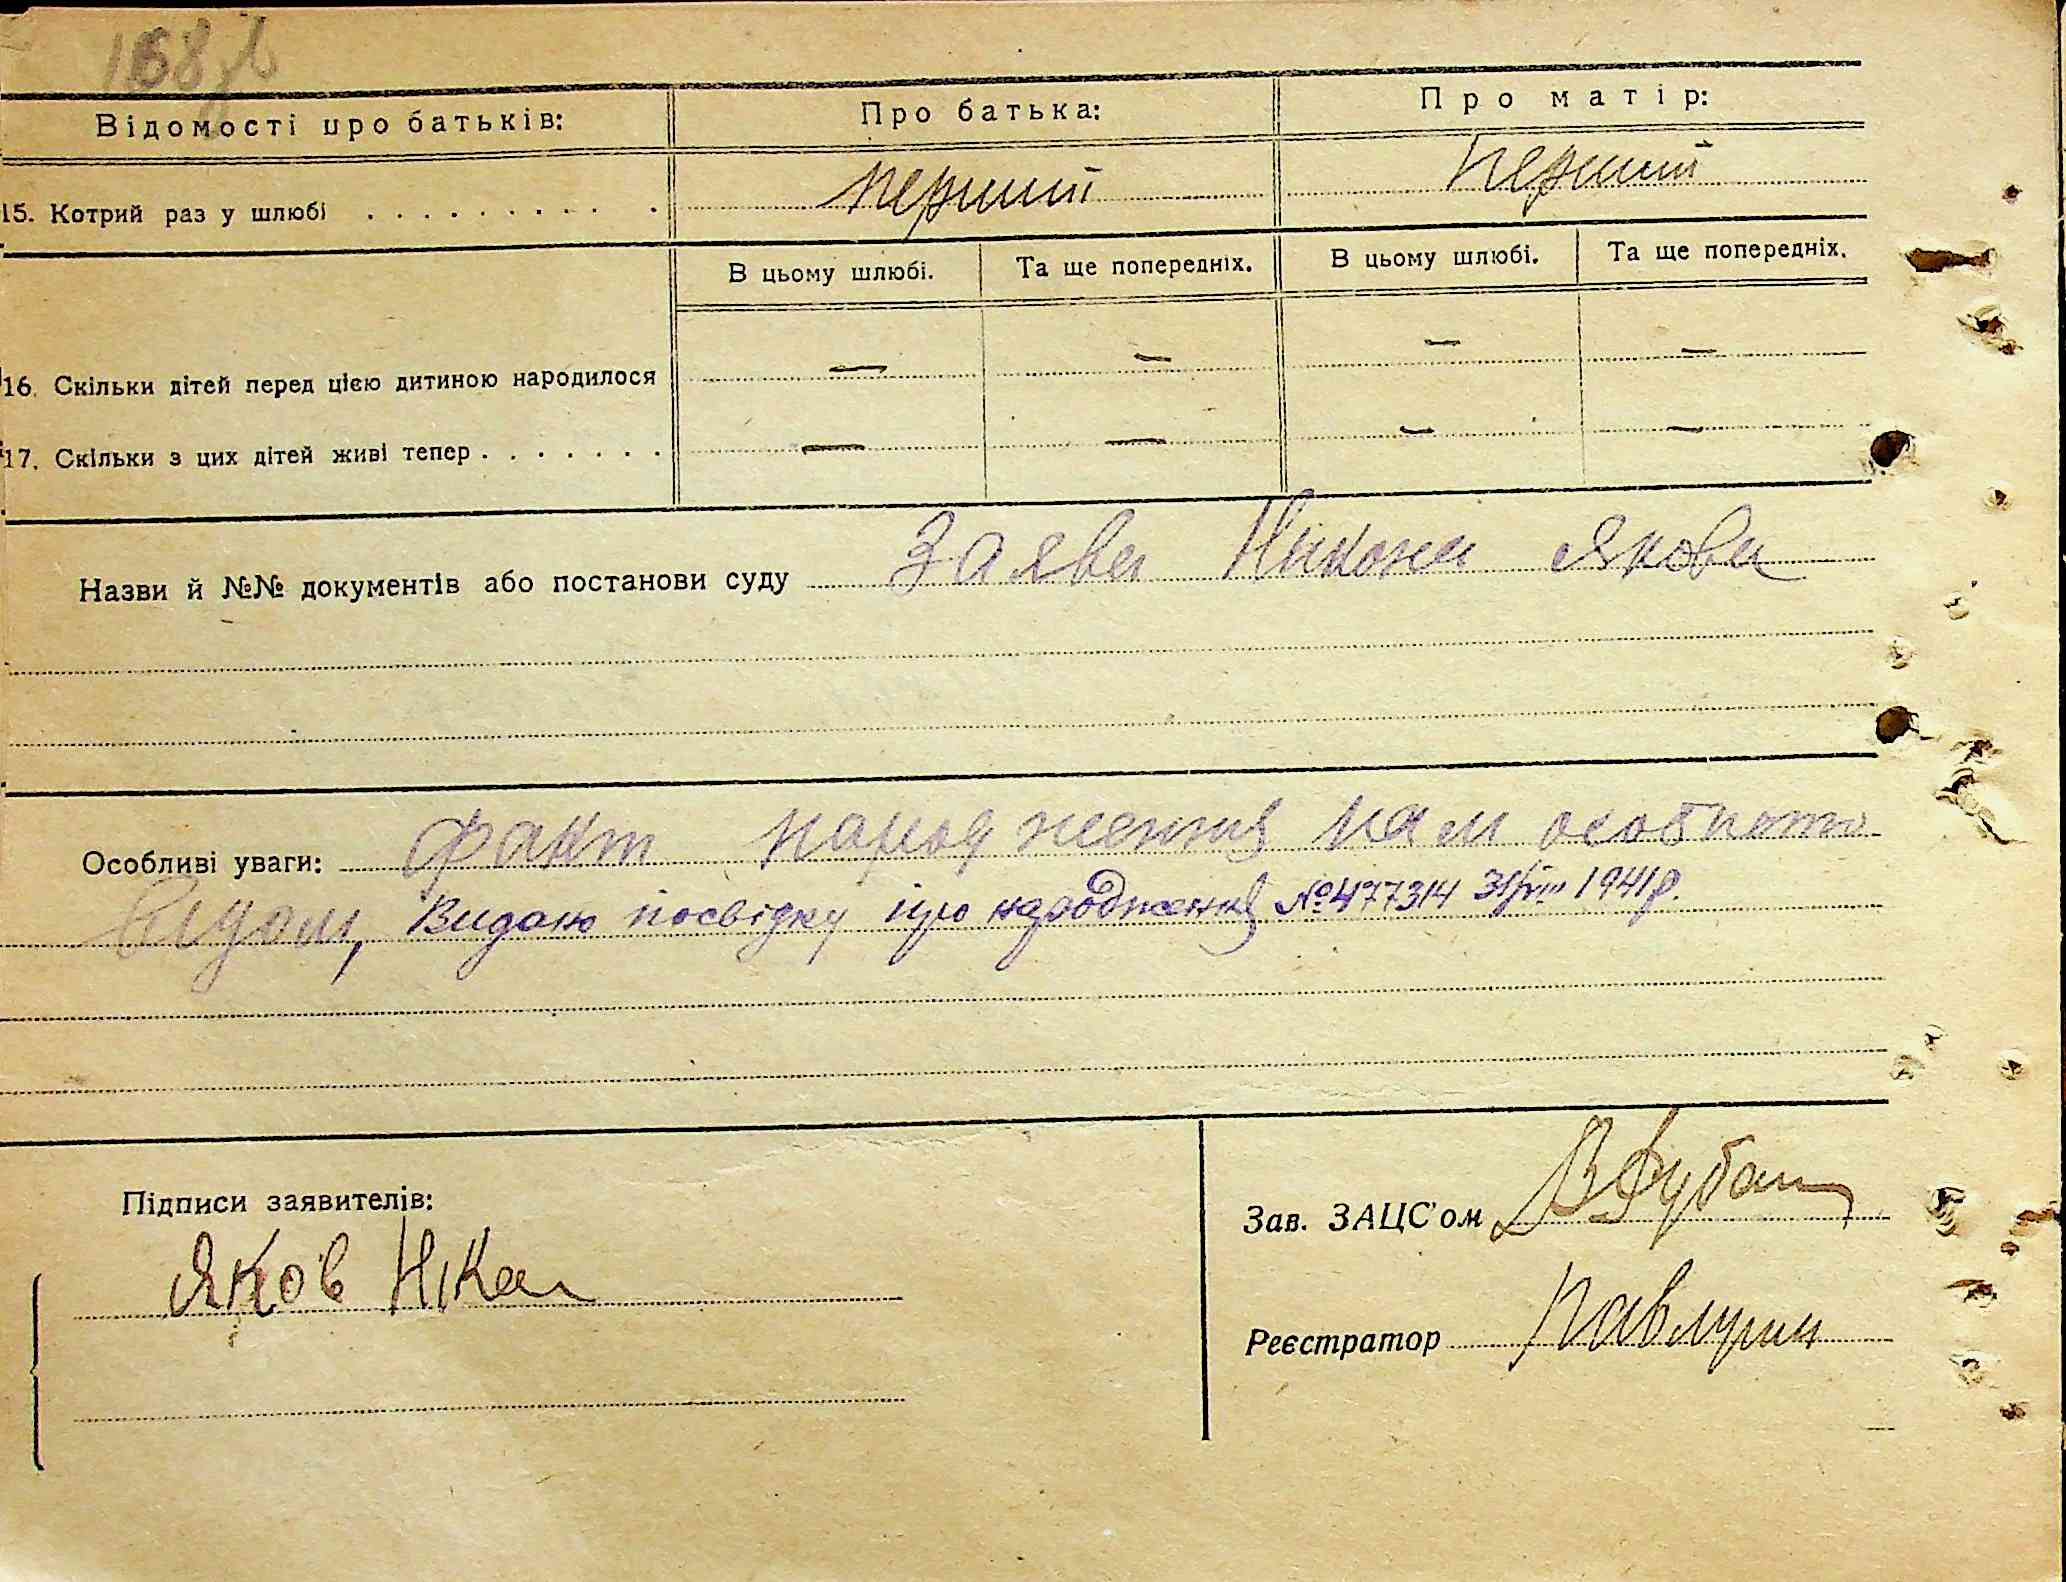 168
Відомості про батьків: Про батька: Про матір:
15. Котрий раз у шлюбі . . . . . . . . . . перший перший
В цьому шлюбі. Та ще попередніх. В цьому шлюбі. Та ще попередніх.
16. Скільки дітей перед цією дитиною народилося — — — —
17. Скільки з цих дітей живі тепер . . . . . . . — — — —
Назви й №№ документів або постанови суду Заява Никона Якова
Особливі уваги: факт народження нам особисто
відом, Видано посвідку про народження №477314 31/VIII 1941р.
Підписи заявителів:
Зав. ЗАЦС'ом
Яков
Реєстратор